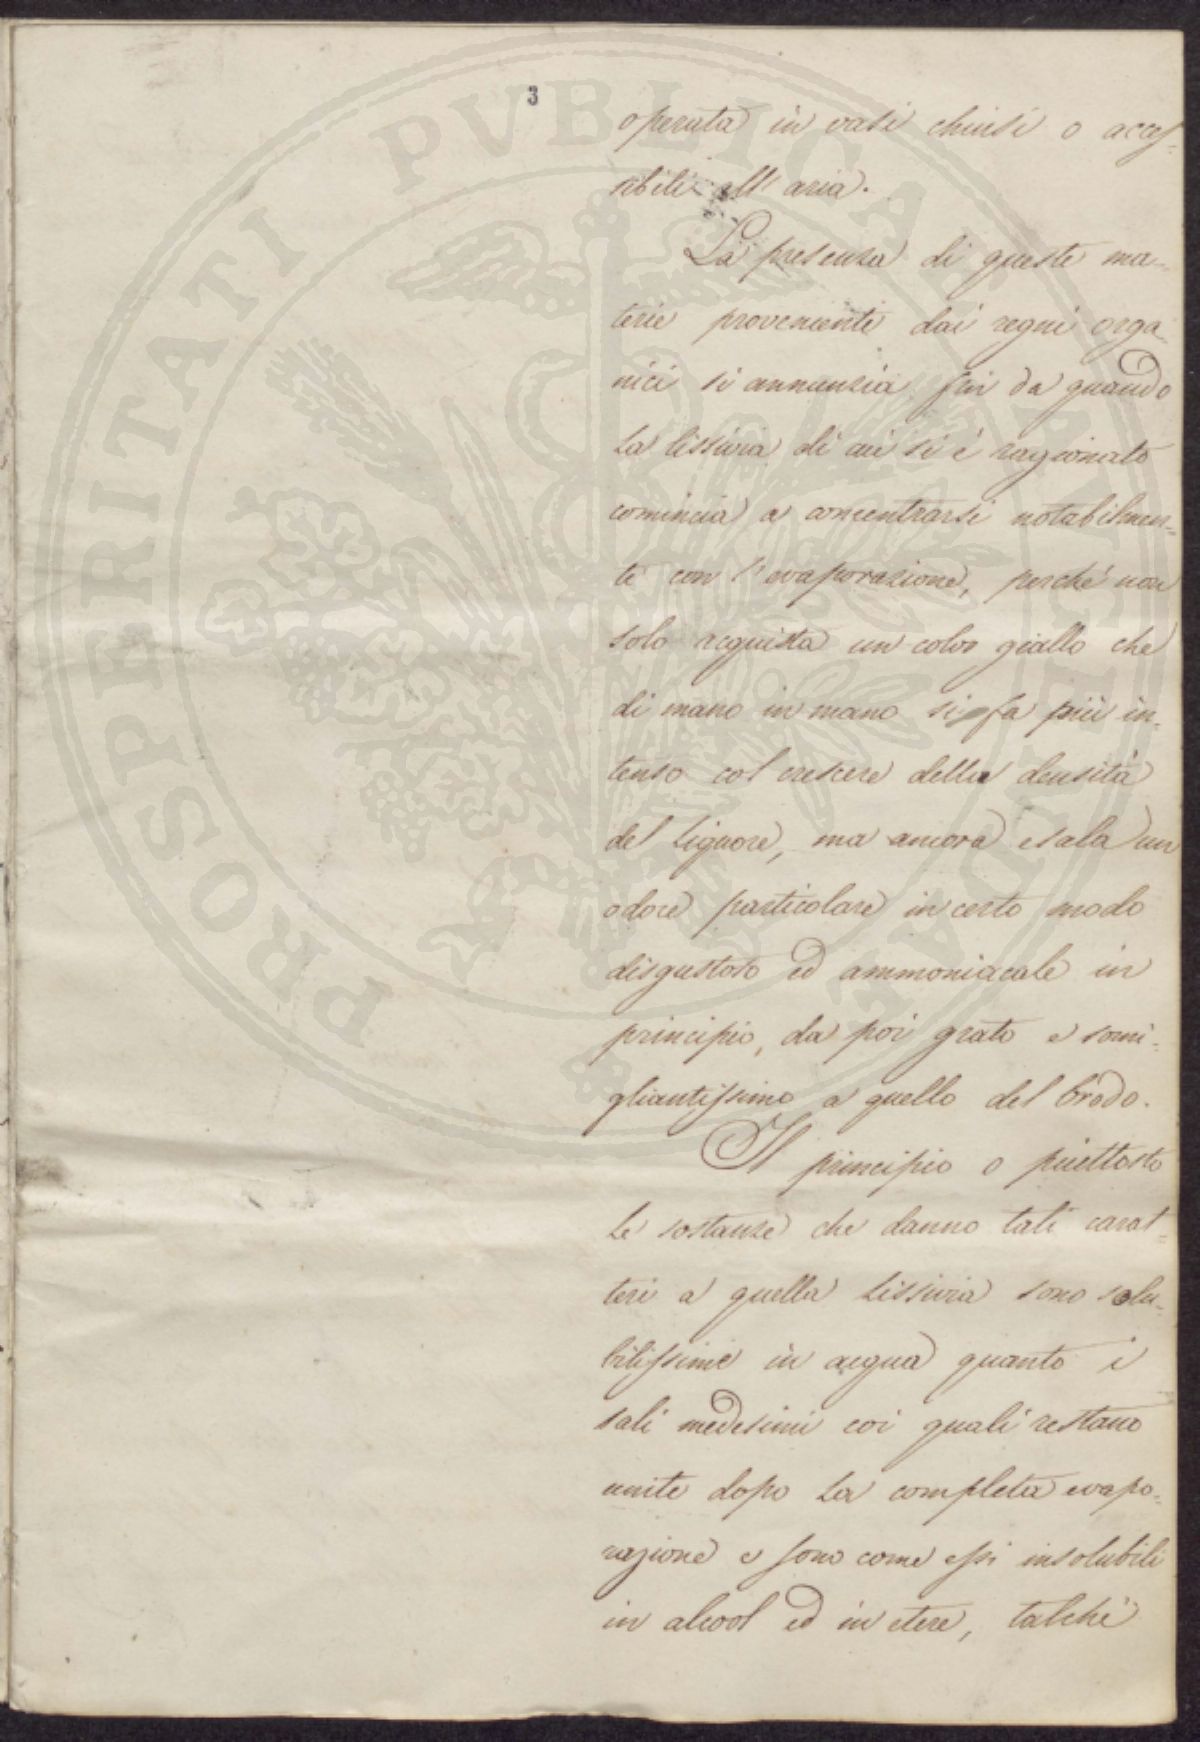 3
operata in vasi chiusi o acces-
sibili all'aria.
La presenza di queste ma-
terie proveniente dai regni orga-
nici si annunzia fin da quando
la lissivia di cui si è ragionato
comincia a concentrarsi notabilmen-
te con l'evaporazione, perchè non
solo acquista un color giallo che
di mano in mano si fa più in-
tenso col crescere della densità
del liquore, ma ancora esala un
odore particolare in certo modo
disgustoso ed ammoniacale in
principio, da poi grato e somi-
gliantissimo a quello del brodo.
Il principio o piuttosto
le sostanze che danno tali carat-
teri a quella lissivia sono solu-
bilissime in acqua quanto i
sali medesimi coi quali restano
unite dopo la completa evapo-
razione e sono come essi insolubili
in alcool ed in etere, talchè
PROSPERITATI PVBLICAE AVGENDAE